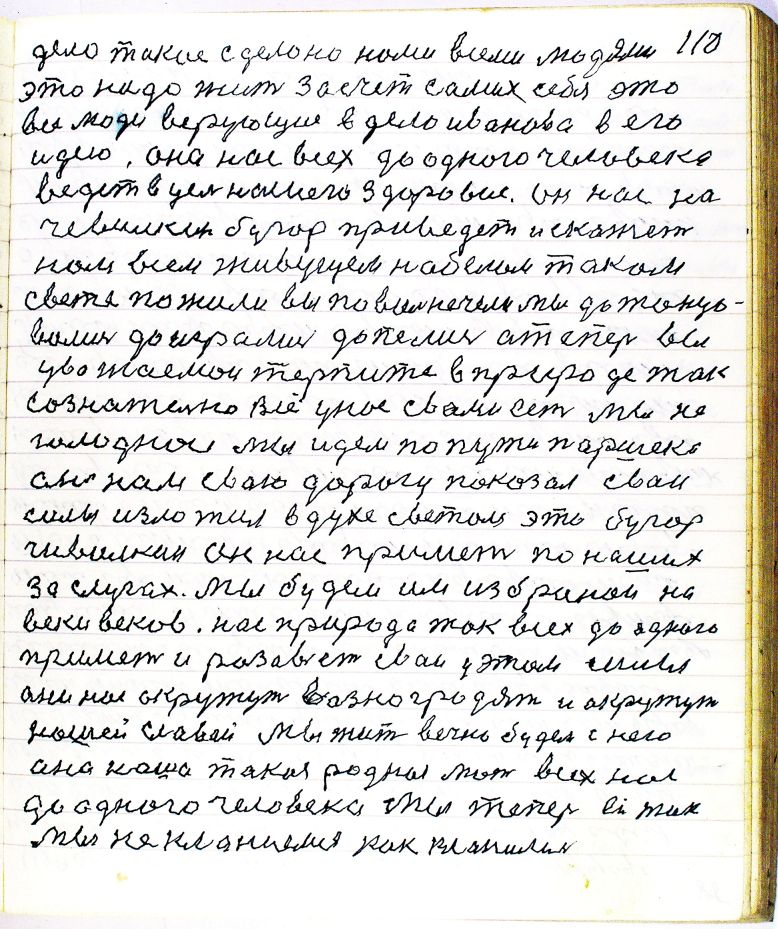 дело такое сделоно номи всеми людями 110
это надо жит засчет самих себя это
все люди верующие в дело иванова в его
идею. она нас всех до одного человека
ведет в цел нашего здоровие. он нас на
чевилкин бугор приведет и скажет
ном всем живущем на белом таком
свете пожили вы повалнечели мы дотонцо-
волис доигралис допелис а тепер вы
уважаемои терпите в природе так
сознателно всё у нос свами ест мы не
голодное мы идем по пути паршека
он нам сваю дорогу показал сваи
силы изложил в духе светом это бугор
чивилкин он нас примет по нашим
заслугах. мы будем им избраной на
веки веков. нас природа так всех до одного
примет и розавет сваи у этом силы
они нос окружут вазногродят и окружут
нашей славай мы жит вечно будем с него
она наша такая родноя мат всех нас
до одного человека мы тепер ей так
мы не кланиемся как кланилис